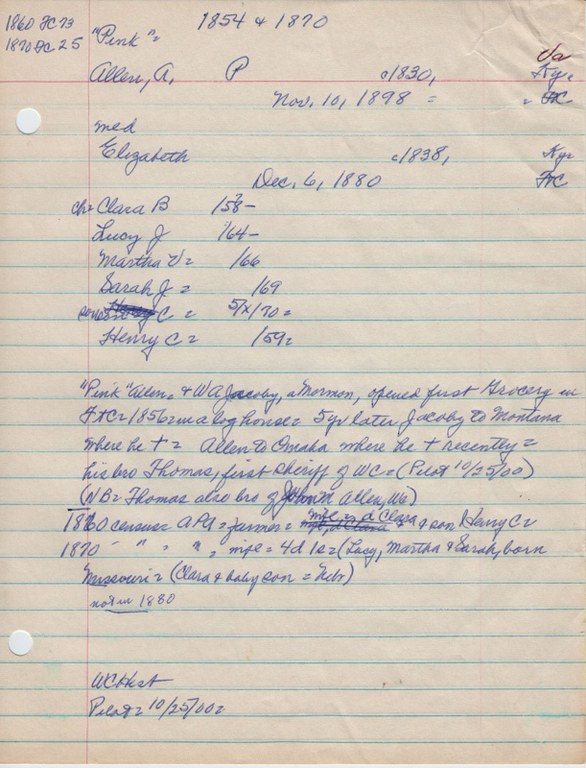 1860 FC 73
1870 FC 25
1854 & 1870
"Pink" =
Va
Allen, A. P c1830, Ky.
Nov. 10, 1898 = = FC
med
Elizabeth c1838, Ky=
Dec. 6, 1880 FC
ch= Clara B 158-
Lucy J 164-
Martha V= 166
Sarah J = 169
son C = 5/x/70=
Henry C= 159=
"Pink" Allen = & WA Jacoby, a Mormon, opened first Grocery in
Ft C = 1856 = in a log house = 5 yr later Jacoby to Montana
where he + = Allen to Omaha where he + recently =
his bro Thomas, first sheriff of WC = (Pilot 10/25/00)
(NB = Thomas also bro of John M Allen,
1860 census = APA = farmer = & son Henry C=
1870 - " = ", wife = 4d 1s = (Lucy, Martha & Sarah, born
Missouri = (Clara & baby son = Nebr)
not in 1880
WC Hist
Pilot = 10/25/00=